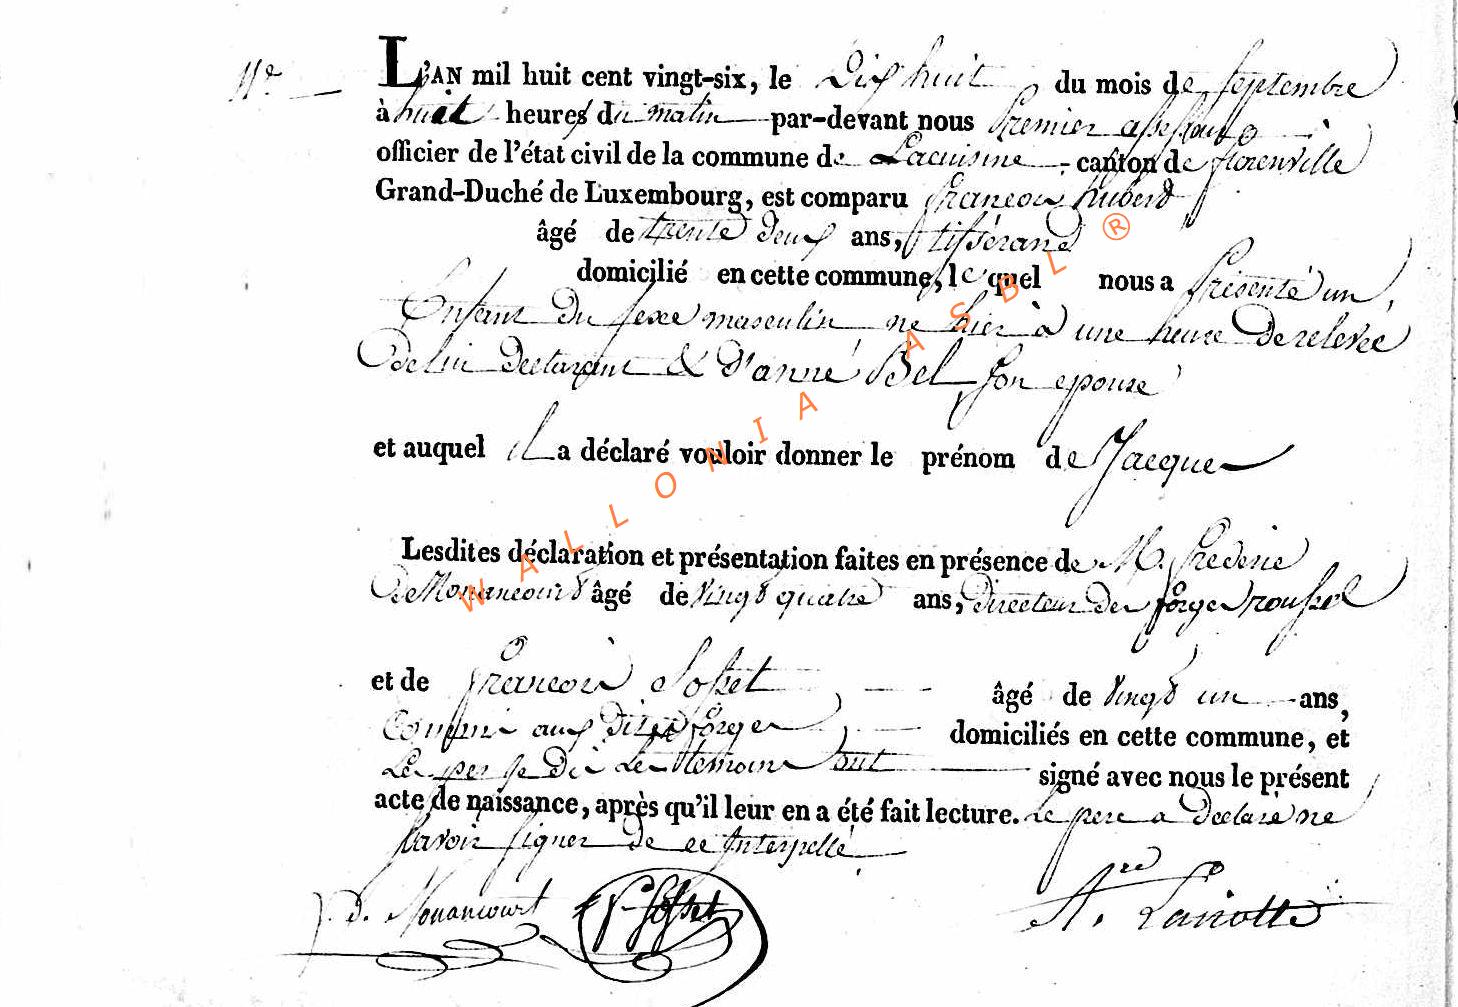 11e
L'AN mil huit cent vingt-six, le Dix huit du mois de septembre
à huit heures du matin par-devant nous Premier assesseur
officier de l'état civil de la commune de Lacuisine canton de florenville
Grand-Duché de Luxembourg, est comparu françois hubert
âgé de trente deux ans, tisserand
domicilié en cette commune, lequel nous a présenté un
Enfant du sexe masculin né hier à une heure de relevée
de lui déclarant & d'anne Bel son epouse
et auquel il a déclaré vouloir donner le prénom de Jacque
Lesdites déclaration et présentation faites en présence de M. frederic
de Monancourt âgé de vingt quatre ans, directeur des forges roussel
et de françois Sosset âgé de vingt un ans,
Commis aux dites forges domiciliés en cette commune, et
Les témoins ont signé avec nous le présent
acte de naissance, après qu'il leur en a été fait lecture. Le pere a declaré ne
savoir signer de ce Interpellé
d. Monancourt f Sosset A. Lariotte
WALLONIA ASBL ®